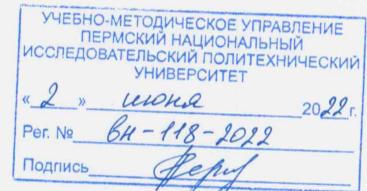 УЧЕБНО-МЕТОДИЧЕСКОЕ УПРАВЛЕНИЕ
ПЕРМСКИЙ НАЦИОНАЛЬНЫЙ
ИССЛЕДОВАТЕЛЬСКИЙ ПОЛИТЕХНИЧЕСКИЙ
УНИВЕРСИТЕТ
« 2 » июня 2022 г.
Рег. № вн-118-2022
Подпись